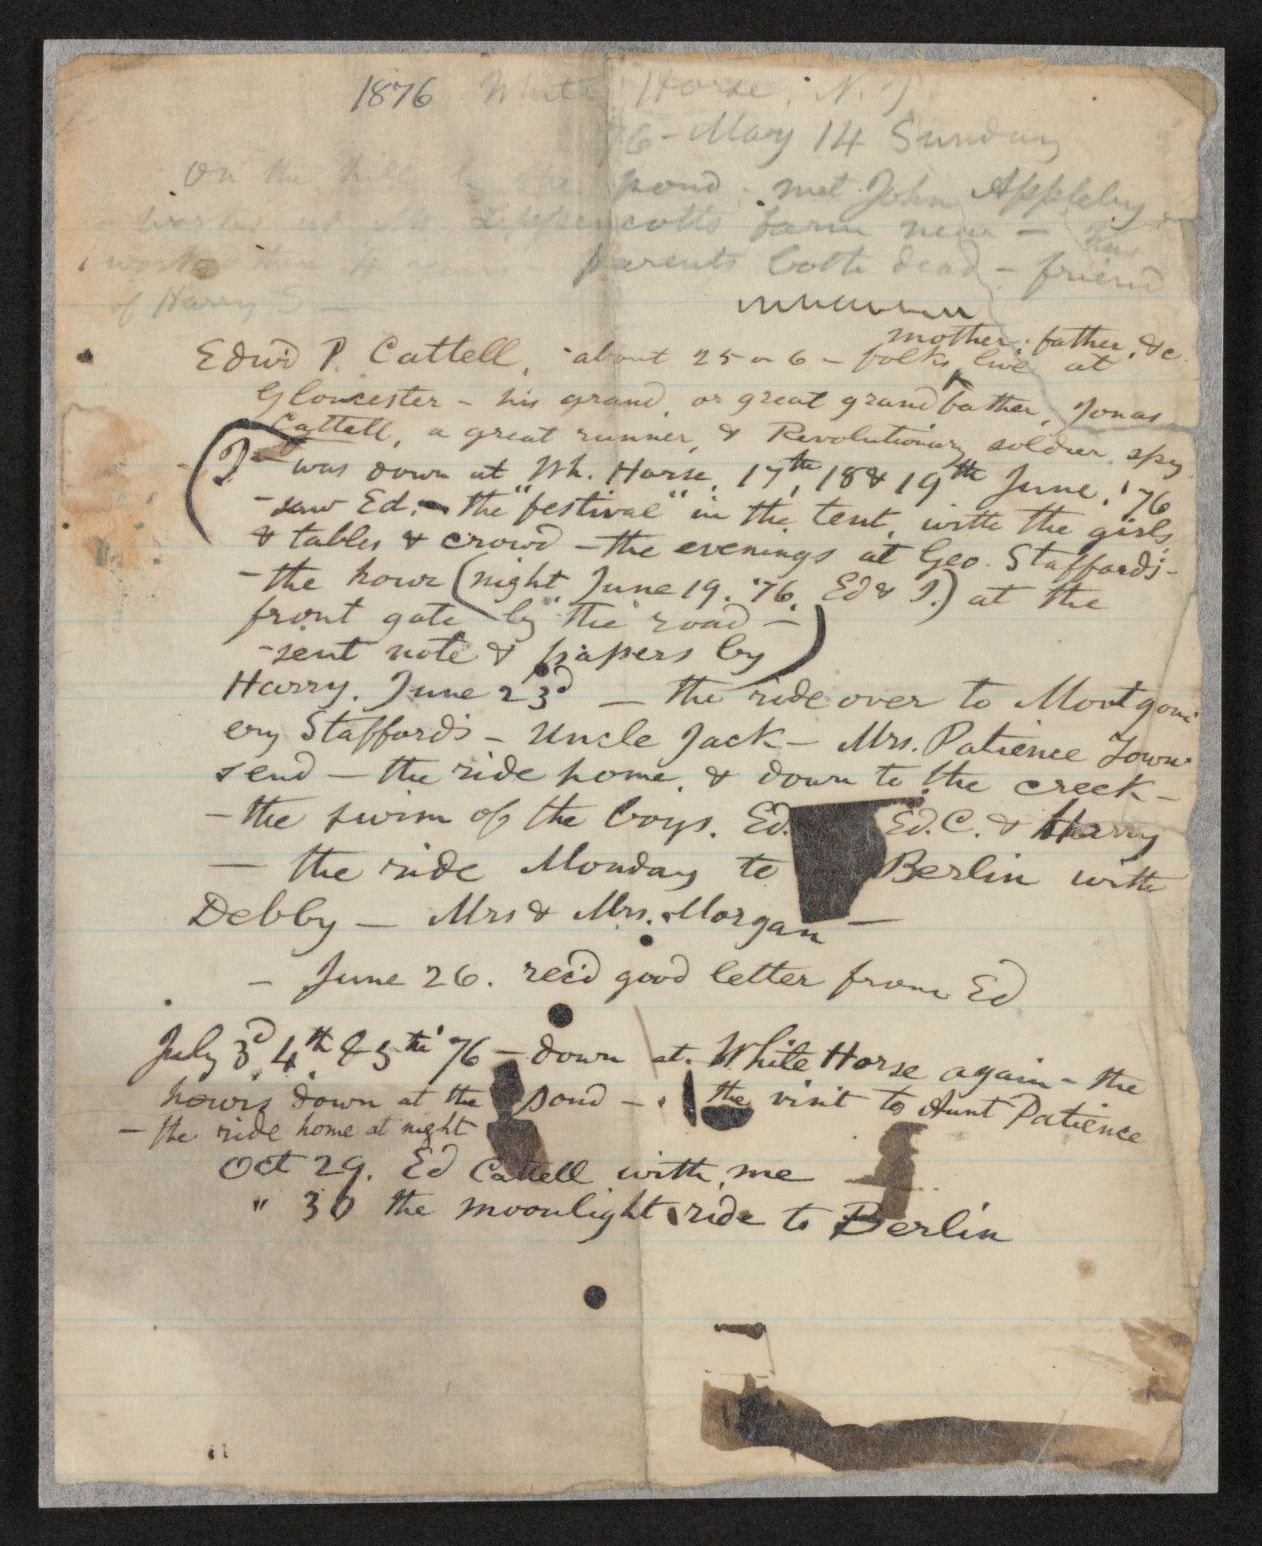 1876 White Horse, N.J.
76 - May 14 Sunday
on the hill by the pond - met John Appleby
- works at Lippencotts farm near - has
worked there years - parents both dead - friend
of Harry S -
mother, father, &c
Edwd P. Cattell, about 25 or 6 - folks live at
Gloucester - his grand, or great grandfather, Jonas
Cattell, a great runner, & Revolutionary soldier, spy
(I - was down at Wh. Horse, 17th, 18 & 19th June, '76
- saw Ed. - the "festival" in the tent, with the girls,
& tables & crowd - the evenings at Geo. Stafford's -
- the hour (night, June 19, '76, Ed & I.) at the
front gate by the road -
- sent note & papers by)
Harry, June 23d - the ride over to Montgom
ery Stafford's - Uncle Jack - Mrs. Patience Town
send - the ride home, & down to the creek -
- the swim of the boys, Ed. Ed. C. & Harry
- the ride Monday to Berlin with
Debby - Mrs & Mrs. Morgan -
- June 26. rec'd good letter from Ed
July 3d, 4th, & 5th '76 - down at White Horse again - the
hours down at the pond - the visit to Aunt Patience
- the ride home at night
Oct 29. Ed Cattell with me
" 30 the moonlight ride to Berlin